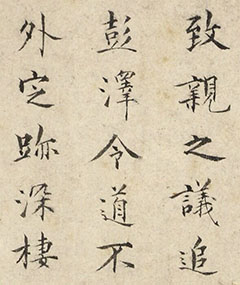 致親之議追
彭澤令道不
外定跡深棲